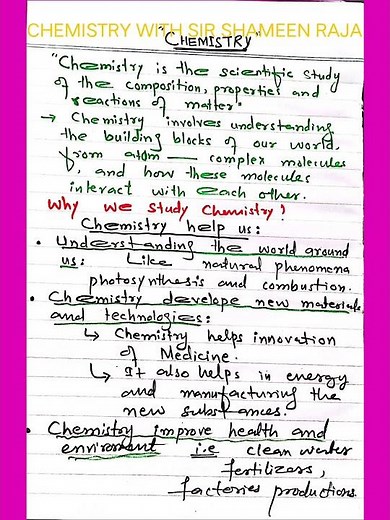 CHEMISTRY WITH SIR SHAMEEN RAJA
"CHEMISTRY"
"Chemistry is the scientific study
of the composition, properties and
reactions of matter".
→ Chemistry involves understanding
the building blocks of our world,
from atom — complex molecules
, and how these molecules
interact with each other.
Why we study Chemistry?
Chemistry help us:
• Understanding the world ground
us: Like natural phenomena
photosynthesis and combustion.
• Chemistry develope new materials
and technologies:
↳ Chemistry helps innovation
of Medicine.
↳ It also helps in energy
and manufacturing the
new substances.
• Chemistry improve health and
enviroment i.e clean water
fertilizers,
factories productions.